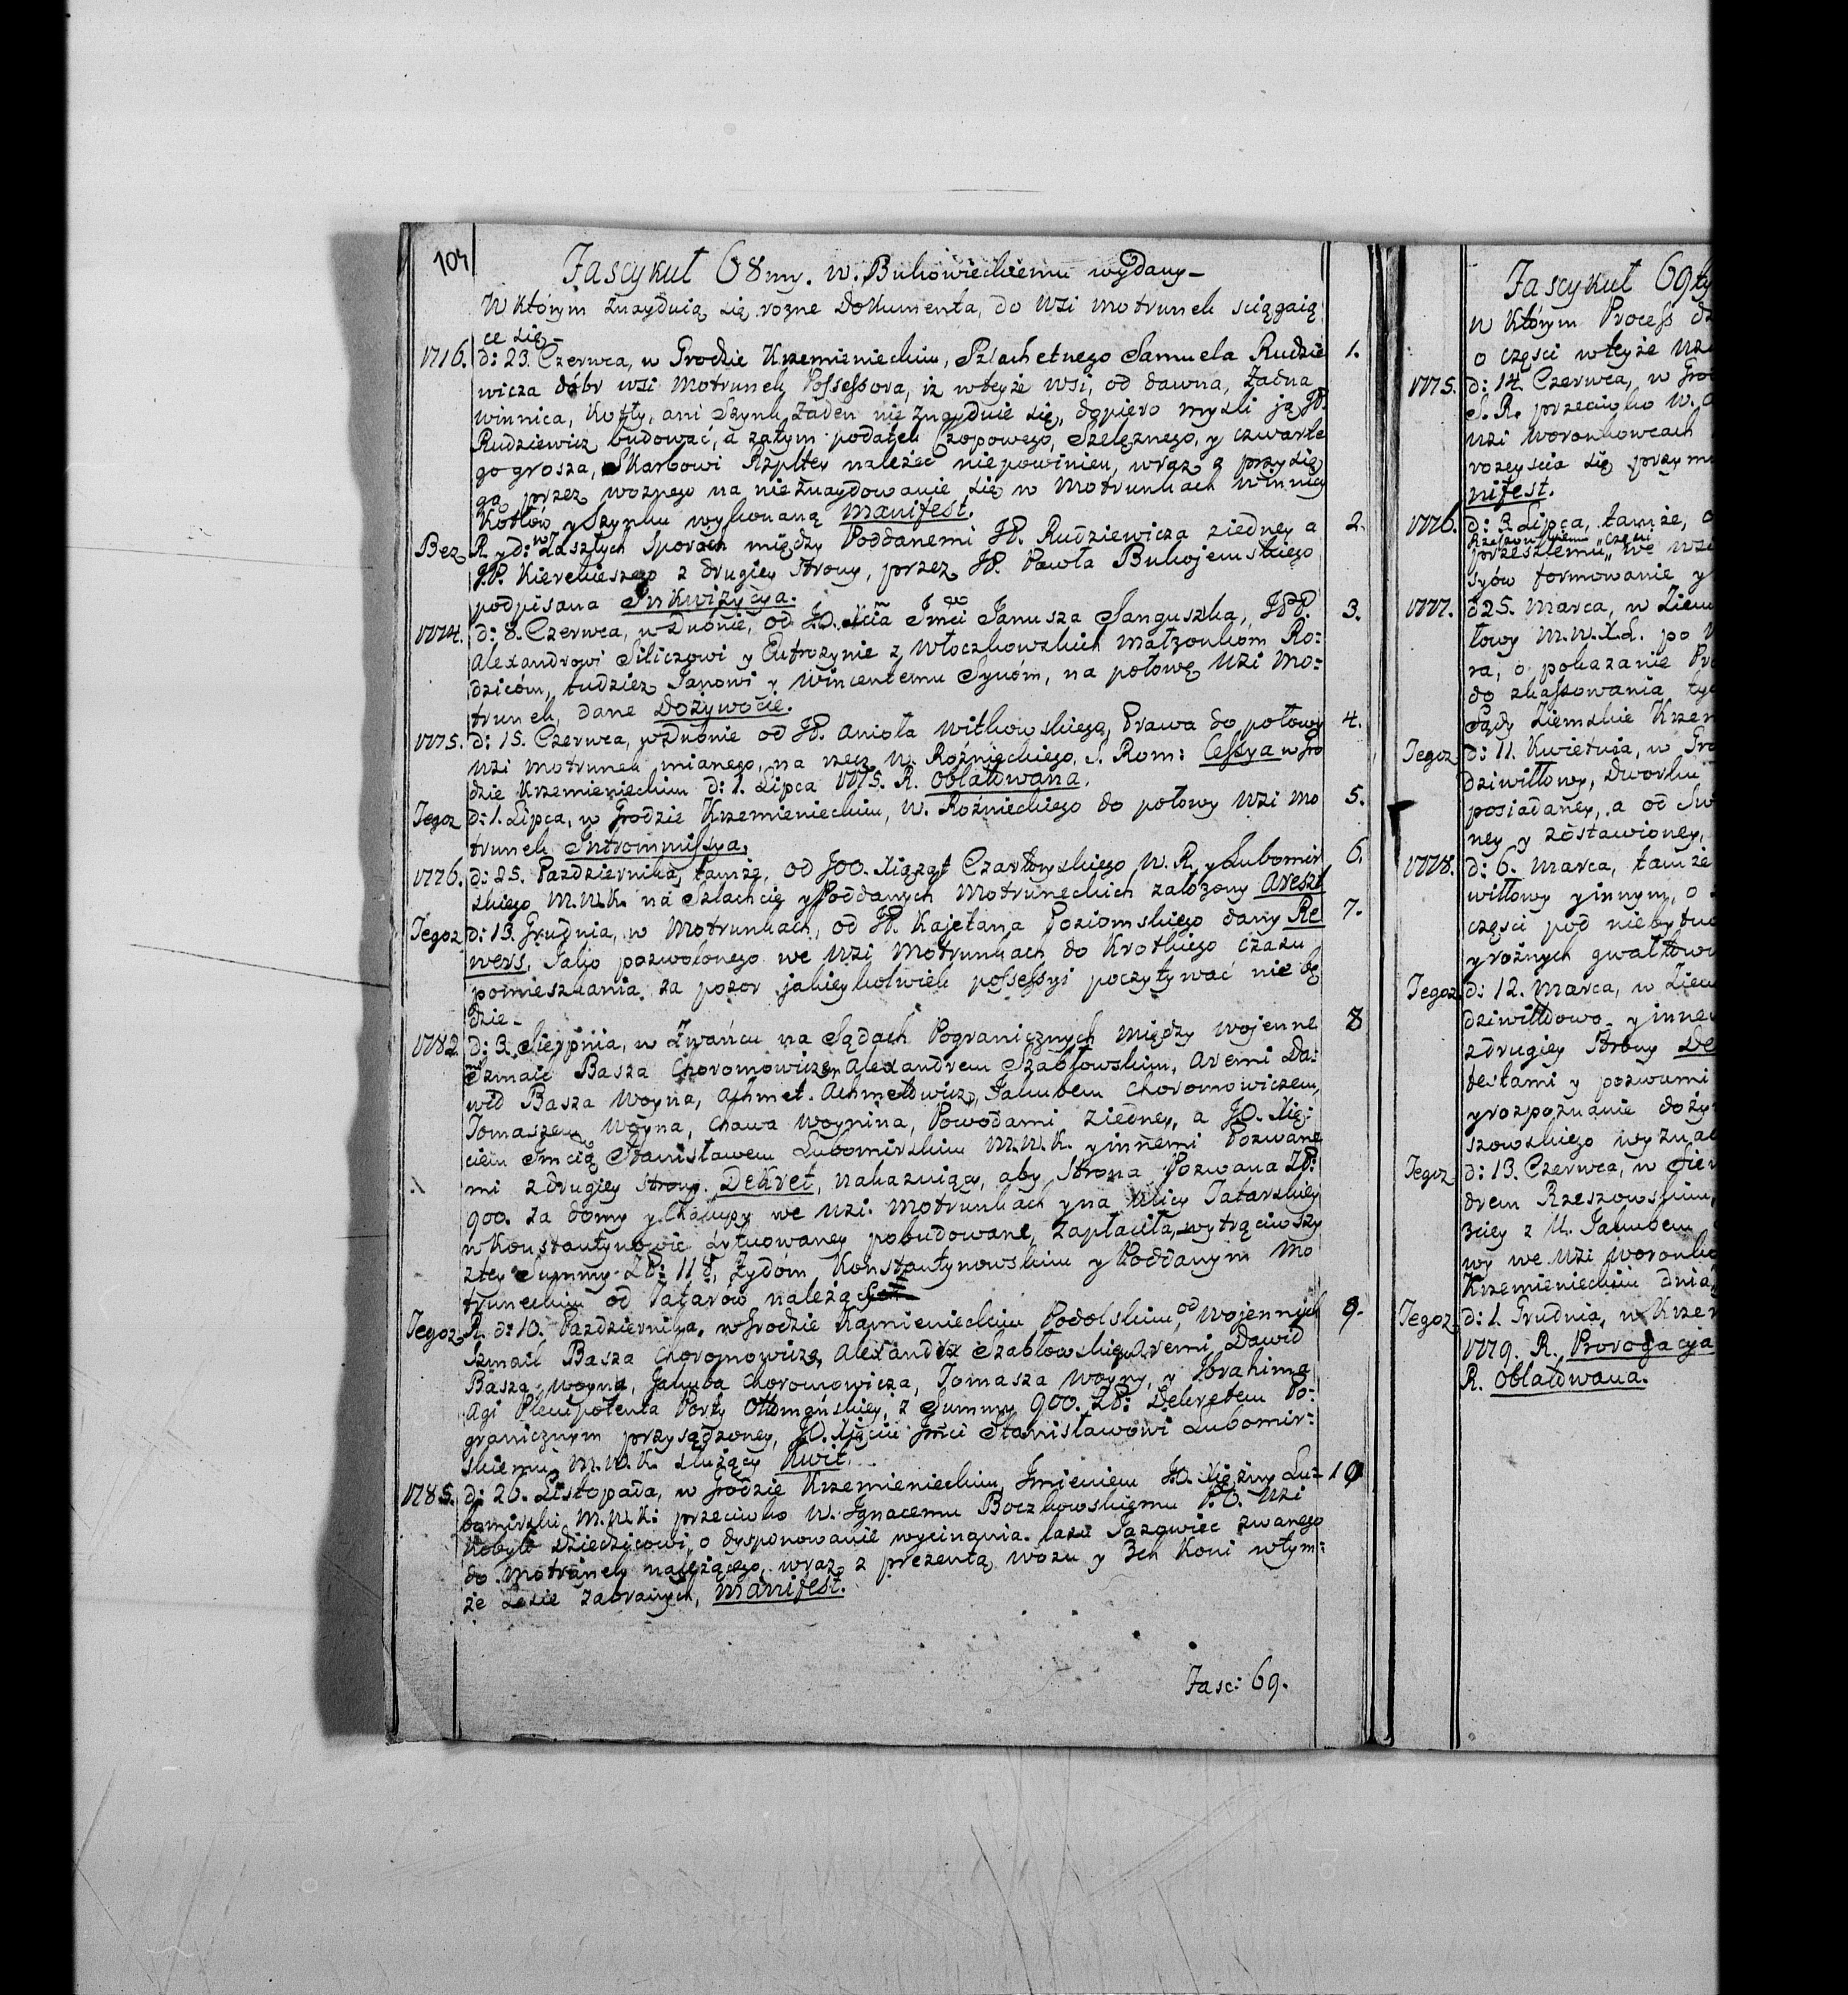 104
Fascykuł 68my. W. Bukowieckiemu wydany-
W którym znayduią się rozne Dokumenta, do Wsi Motrunek sciągaią
ce się-
1716. d: 23. Czerwca, w Grodzie Krzemienieckim, Szlachetnego Samuela Rudzie 1.
wicza dóbr wsi Motrunek Possessora, iz wteyże Wsi, od dawna, żadna
winnica, Kotły, ani Szynk żaden nie znayduie się, dopiero mysli ją JP.
Rudziewicz budować, a zatym podatek Czopowego, Szelężnego, y czwarte
go grosza, Skarbowi Rzpltey należeć niepowinien, wraz z przysię
gą przez woznego na nieznaydowanie się w Motrunkach Winnicy
Kotłów y Szynku wykonaną Manifest.
Bez R. y d: w Zaszłych Sporach między Poddanemi JP. Rudziewicza ziedney a 2.
JP. Kierekieszego z drugiey strony, przez JP. Pawła Bukojemskiego
podpisana Inkwizycya.
1774. d: 8. Czerwca, w Dubnie, od JO. Xcia Jmci Janusza Sanguszka, JPP. 3.
Alexandrowi Siliczowi y Eufrozynie z Włoczkowskich Małżonkom Ro:
dzicóm, tudziez Janowi y Wincentemu Synóm, na połowę Wsi Mo:
trunek, dane Dożywocie.
1775. d: 15. Czerwca, w Dubnie od JP. Anioła Witkowskiego, Prawa do połowy 4.
Wsi Motrunek mianego, na rzecz W. Rożnieckiego, S. Rom: Cessya w Gro
dzie Krzemienieckim d: 1. Lipca 1775. R. Oblatowana.
Tegoz d: 1. Lipca, w Grodzie Krzemienieckim, W. Rożnieckiego do połowy Wsi Mo 5.
trunek Intromissya.
1776. d: 25. Pazdziernika, tamże, od JOO. Xiążąt Czartoryskiego W. R. y Lubomir 6.
skiego M.W.K. na Szlachcię y Poddanych Motruneckich założony Areszt
Tegoz d: 13. Grudnia, w Motrunkach, od JP. Kajetana Poziomskiego dany Re 7.
wers, Jako pozwolonego we Wsi Motrunkach do Krotkiego czasu
pomieszkania za pozor jakieykolwiek possessyi poczytywać nie bę
dzie-
1782. d: 3. Sierpnia, w Zwańcu na Sądach Pogranicznych między Wojenne 8
mi Szmaić Basza Choromowiczem, Alexandrem Szabłowskim, Aremi Da:
wid Basza Woyna, Achmet Achmetowicz, Jakubem Choromowiczem,
Tomaszem Woyna, Chawa Woynina, Powodami ziedney, a JO. Xię:
ciem Jmcią Stanisławem Lubomirskim M.W.K. y innemi Pozwane
mi zdrugiey Strony. Dekret, nakazuiący, aby Strona Pozwana ZP:
900. za domy y Chałupy we Wsi Motrunkach y na Ulicy Tatarskiey
w Konstantynowie sytuowaney pobudowane, zapłaciła, wytrąciwszy
ztey Summy ZP: 118, Żydóm Konstantynowskim y Poddanym Mo
truneckim od Tatarów należące
Tegoz R. d: 10. Pazdziernika, w Grodzie Kamienieckim Podolskim, od Wojennych 9.
Szmail Basza Choromowicza, Alexandra Szabłowskiego, Aremi Dawid
Basza Woyna, Jakuba Choromowicza, Tomasza Woyny, y Ibrahima
Agi Plenipotenta Porty Ottomańskiey, z Summy 900. ZP: Dekretem Po:
granicznym przysądzoney, JO. Xięciu Jmci Stanisławowi Lubomir:
skiemu M.W.K. służący Kwit.
1785. d: 26. Listopada, w Grodzie Krzemienieckim, Jmieniem JO. Xiężny Lu- 10
bomirski M.W.K: przeciwko W. Ignacemu Boczkowskiemu P.O. Wsi
Kobyle Dziedzicowi, o dysponowanie wycinania lasu Jazowiec zwanego
do Motrunek należącego, wraz z prezentą wozu y 3ch Koni wtym:
że Lesie zabranych, Manifest.
Fasc: 69.
Fascykuł 69ty
w Którym Process
o części wteyże
1775. d: 14. Czerwca, w
S. R. przeciwko W.
Wsi Woronkowcach
rozeyscia się przym
nifest.
1776. d: 3. Lipca, tamże,
przeszłemu we wsi
syów formowanie y
1777. d 25. Marca, w Ziem
towy M.W.X.L. po
ra, o pokazanie
do skassowania
Sądy Ziemskie Krzem
Tegoz d: 11. Kwietnia, w
dziwiłłowy, Dworku
posiadaney, a od
ney y zostawioney,
1778. d: 6. Marca, tamże
wiłłowy y innym, o
części pod niebytno
yrożnych gwałtow
Tegoz d: 12. Marca, w Ziem
dziwiłłową y inne
zdrugiey Strony De
testami y pozwami
yrozpoznanie doży
szowskiego wyzna
Tegoz d: 13. Czerwca, w
drem Rzeszowskim,
Bciey z U. Jakubem
wy we Wsi Woronko
Krzemienieckim dnia
Tegoz d: 1. Grudnia, w Krzem
1779. R. Prorogacya
R. Oblatowana.